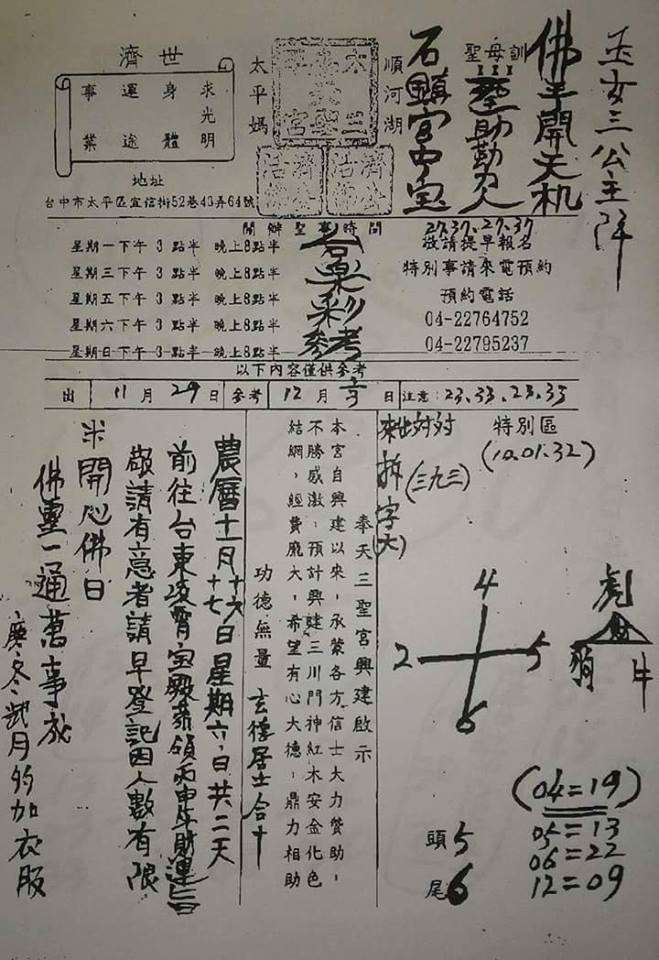 玉女三公主降
佛手開天机
聖母訓
聖助勤人
石鎮宮中宝
順河湖
太平媽
奉天三聖宮
濟公活佛
濟世
求光明
身體
運途
事業
地址
台中市太平區宜信街52巷43弄64號
開辦聖事時間
星期一下午3點半 晚上8點半
星期三下午3點半 晚上8點半
星期五下午3點半 晚上8點半
星期六下午3點半 晚上8點半
星期日下午3點半 晚上8點半
合樂彩參考
27.37.27.37
敬請提早報名
特別事請來電預約
預約電話
04-22764752
04-22795237
以下內容僅供參考
出 11月29日 參考 12月 日 注意:23.33.23.33
特別區
(10.01.32)
來出対対
拆字(大)
(三九三)
4
2 5
6
虎
豬 牛
(04=19)
05=13
06=22
12=09
頭5
尾6
奉天三聖宮興建啟示
本宮自興建以來,承蒙各方信士大力贊助,
不勝感激,預計興建三川門神紅木安金化色
結網,經費龐大,希望有心大德,鼎力相助
功德無量 玄德居士合十
農曆十一月十六十七日星期六、日共二天
前往台東凌霄宝殿恭領丙申年財運旨
敬請有意者請早登記因人數有限
米開心佛曰
佛靈一通萬事成
寒冬 月多加衣服